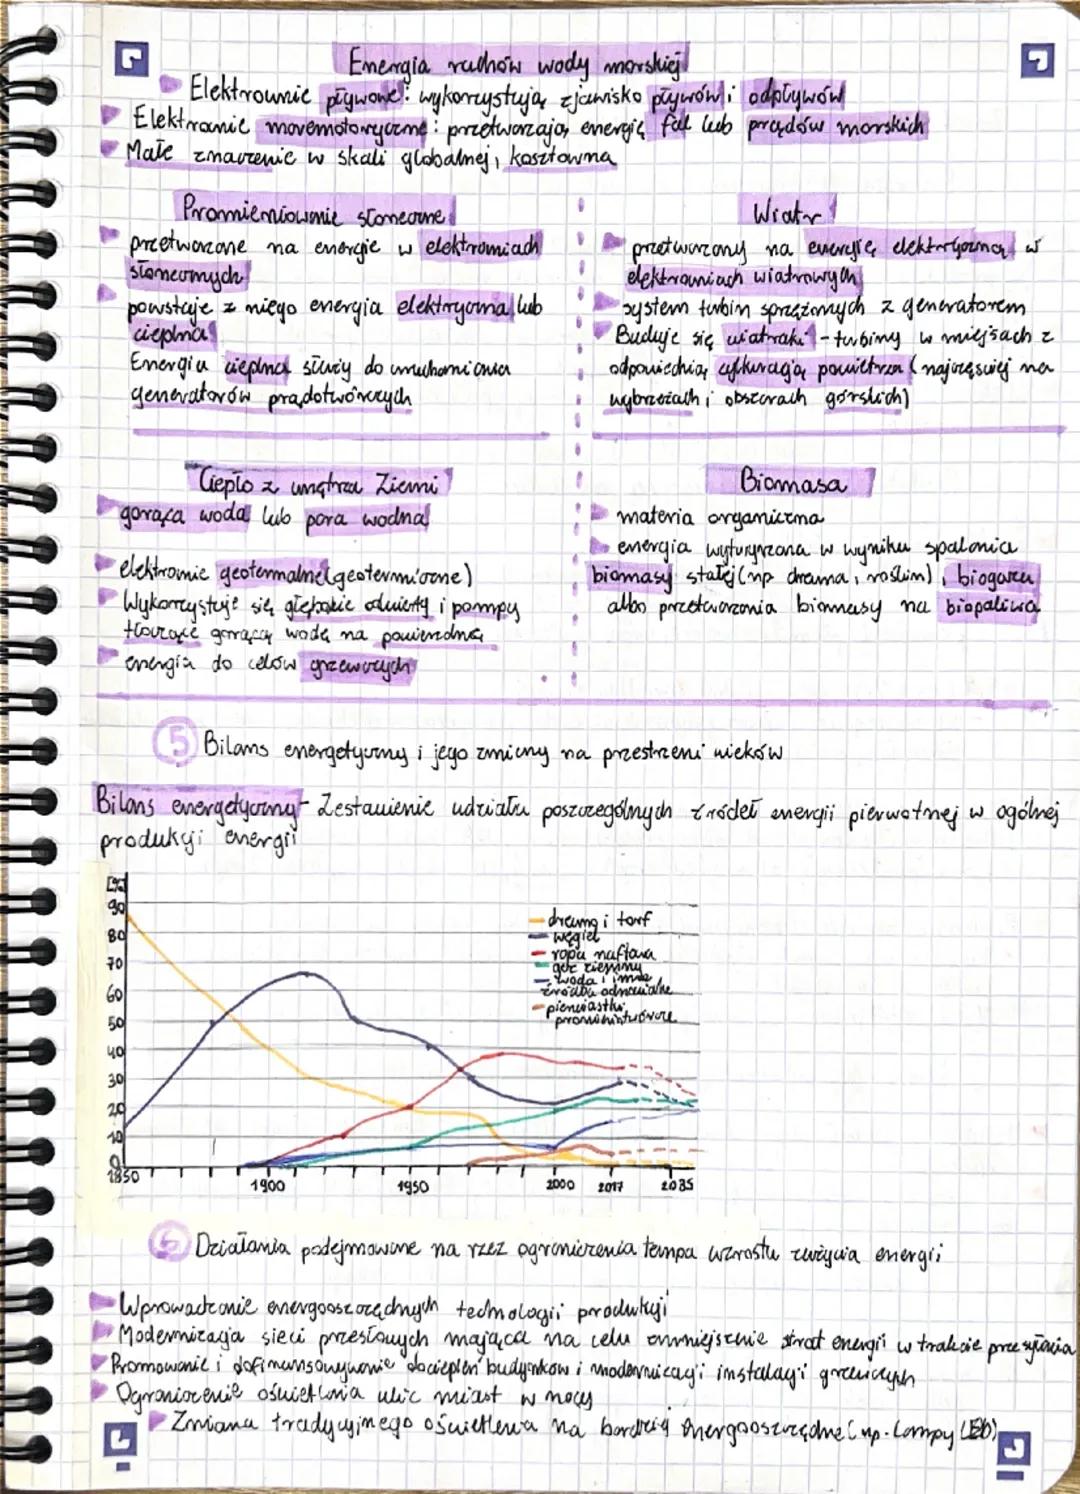 Energia ruchów wody morskiej
Elektrownie pływowe: wykorzystują zjawisko pływów i odpływów
Elektrownie maremotoryczne: przetwarzają energię fal lub prądów morskich
Małe znaczenie w skali globalnej, kosztowna
Promieniowanie słoneczne
przetwarzane na energie w elektrowniach
słonecznych
powstaje z niego energia elektryczna lub
cieplna
Energia cieplna służy do uruchomiania
generatorów prądotwórczych
Wiatr
przetwarzany na energię elektryczną w
elektrowniach wiatrowych
system turbin sprzężonych z generatorem
Buduje się wiatraki - turbiny w miejsach z
odpowiednią cyrkulacją powietrza (najczęściej na
wybrzeżach i obszarach górskich)
Ciepło z wnętrza Ziemi
gorąca woda lub para wodna
elektrownie geotermalne (geotermiczne)
Wykorzystuje się głębokie odwierty i pompy
tłoczące gorącą wodę na powierzchnię
energia do celów grzewczych
Biomasa
materia organiczna
energia wytwarzana w wyniku spalania
biomasy stałej (np drewna, roślin), biogazu
albo przetwarzania biomasy na biopaliwa
5 Bilans energetyczny i jego zmiany na przestrzeni wieków
Bilans energetyczny - Zestawienie udziału poszczególnych źródeł energii pierwotnej w ogólnej
produkcji energii
[%]
90
80
70
60
50
40
30
20
10
0
drewno i torf
węgiel
ropa naftowa
gaz ziemny
woda i inne
źródła odnawialne
pierwiastki
promieniotwórcze
1850 1900 1950 2000 2017 2035
6 Działania podejmowane na rzez ograniczenia tempa wzrostu zużycia energii
Wprowadzanie energooszczędnych technologii produkcji
Modernizacja sieci przesłowych mająca na celu zmniejszenie strat energii w trakcie przesyłania
Promowanie i dofinansowywanie dociepleń budynków i modernizacji instalacji grzewczych
Ograniczenie oświetlenia ulic miast w nocy
Zmiana tradycyjnego oświetlenia na bardziej energooszczędne (np. lampy LED)